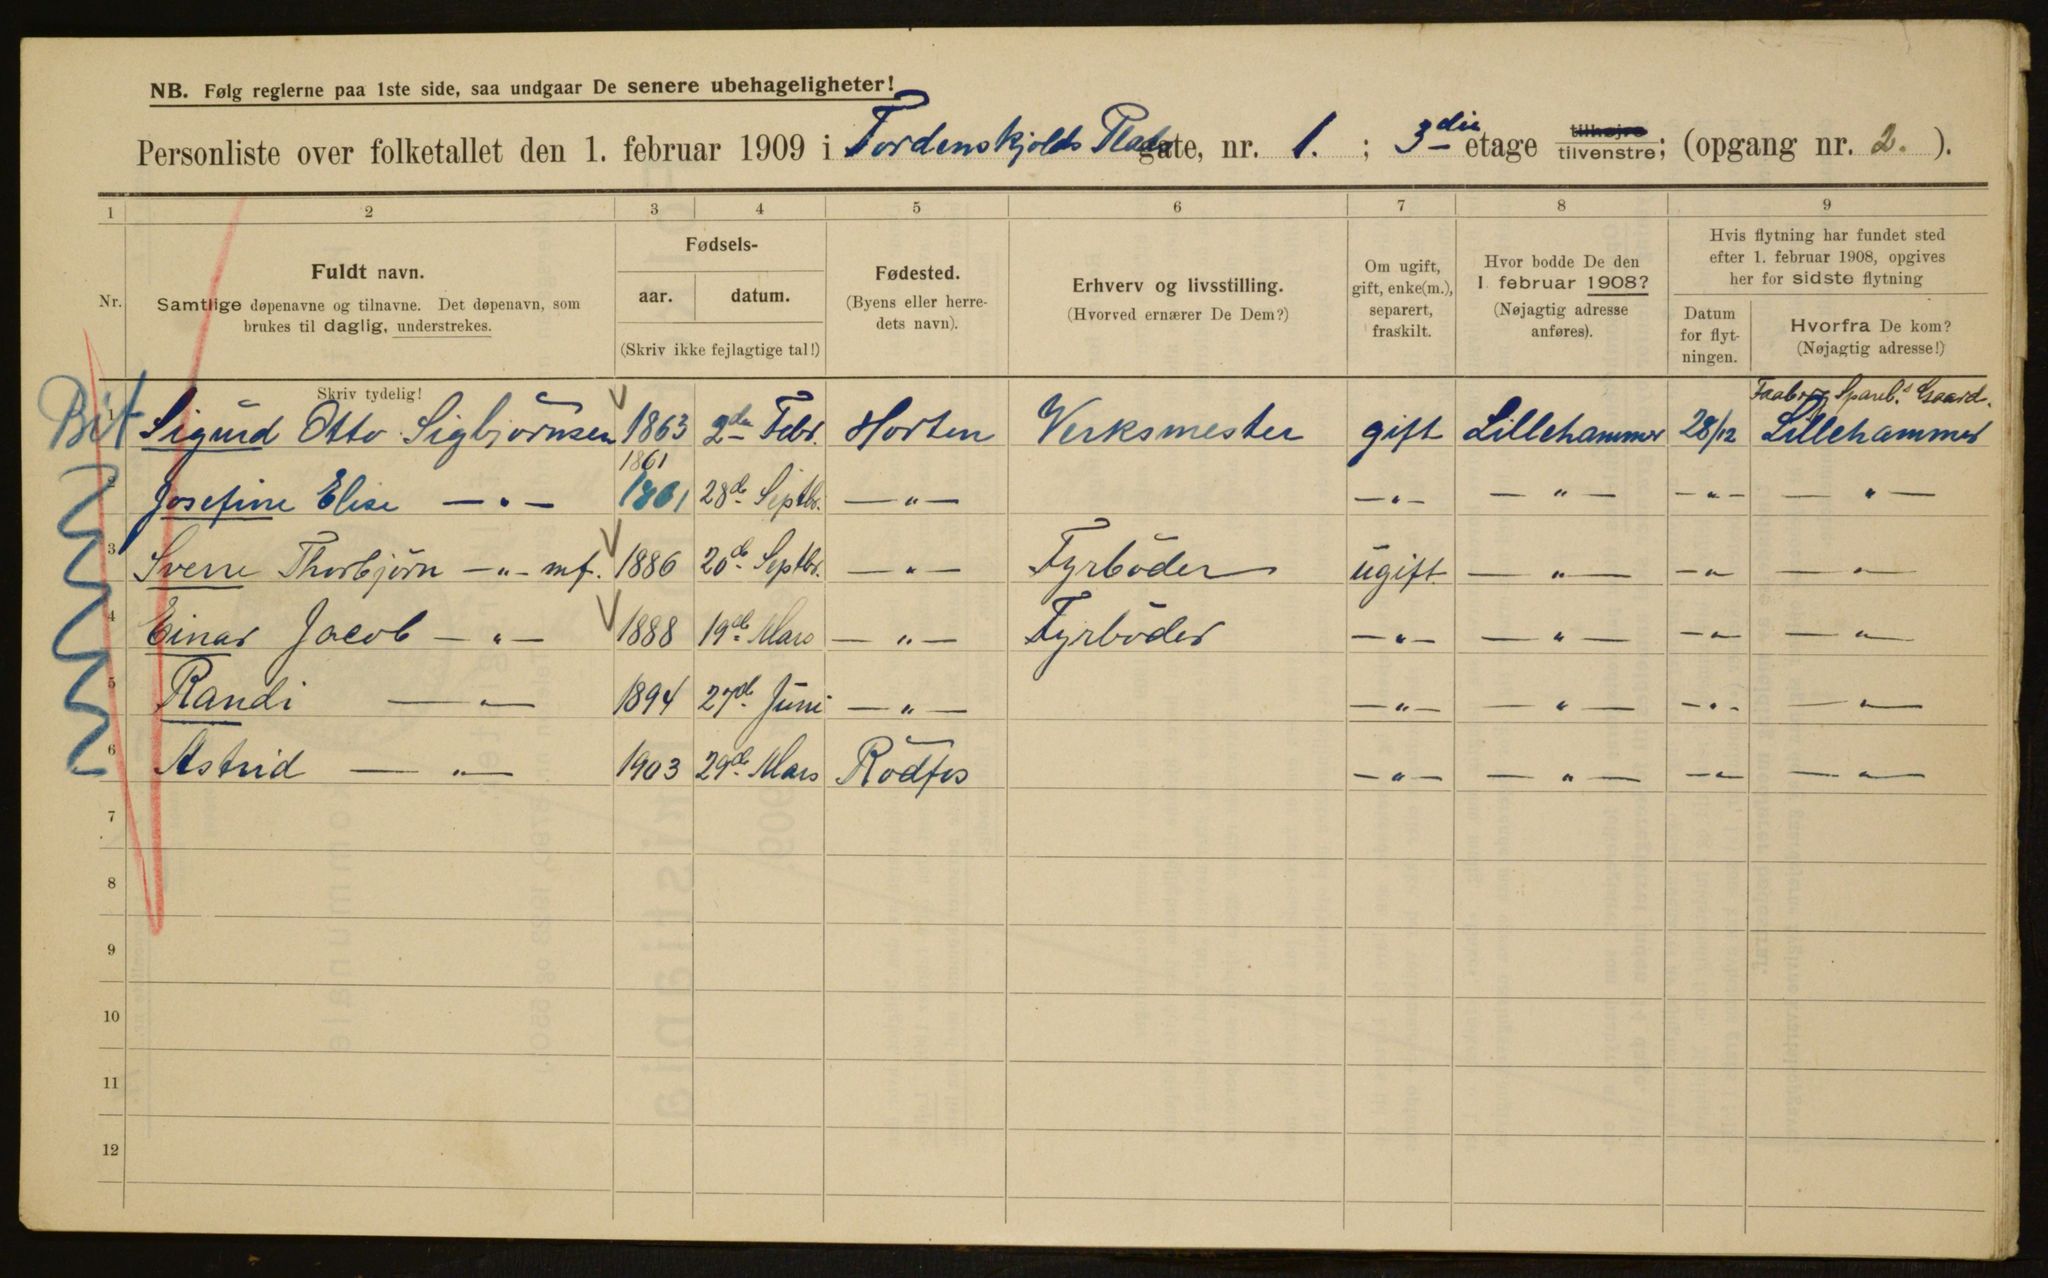 NB. Følg reglerne paa 1ste side, saa undgaar De senere ubehageligheter!
Personliste over folketallet den 1. februar 1909 i Tordenskjolds Plads gate, nr. 1. ; 3die etage tilhøjre tilvenstre; (opgang nr. 2. ).
1 2 3 4 5 6 7 8 9
Nr.
Fuldt navn.
Samtlige døpenavne og tilnavne. Det døpenavn, som
brukes til daglig, understrekes.
Skriv tydelig!
Fødsels-
aar. datum.
(Skriv ikke fejlagtige tal!)
Fødested.
(Byens eller herre-
dets navn).
Erhverv og livsstilling.
(Hvorved ernærer De Dem?)
Om ugift,
gift, enke(m.),
separert,
fraskilt.
Hvor bodde De den
1. februar 1908?
(Nøjagtig adresse
anføres).
Hvis flytning har fundet sted
efter 1. februar 1908, opgives
her for sidste flytning
Datum
for flyt-
ningen.
Hvorfra De kom?
(Nøjagtig adresse!)
Faaberg Spareb.s Gaard.
1 Sigurd Otto Sigbjørnsen 1863 2den Febr. Horten Verksmester gift Lillehammer 28/12 Lillehammer
1861
2 Josefine Elise — " — 1861 28de Septbr. — " — — " — — " — — " — — " —
3 Sverre Thorbjörn — " — mf. 1886 20de Septbr. — " — Fyrböder ugift — " — — " — — " —
4 Einar Jacob — " — 1888 19de Mars — " — Fyrböder — " — — " — — " — — " —
5 Randi — " — 1894 27de Juni — " — — " — — " — — " — — " —
6 Astrid — " — 1903 29de Mars Rödfos — " — — " — — " — — " —
7
8
9
10
11
12